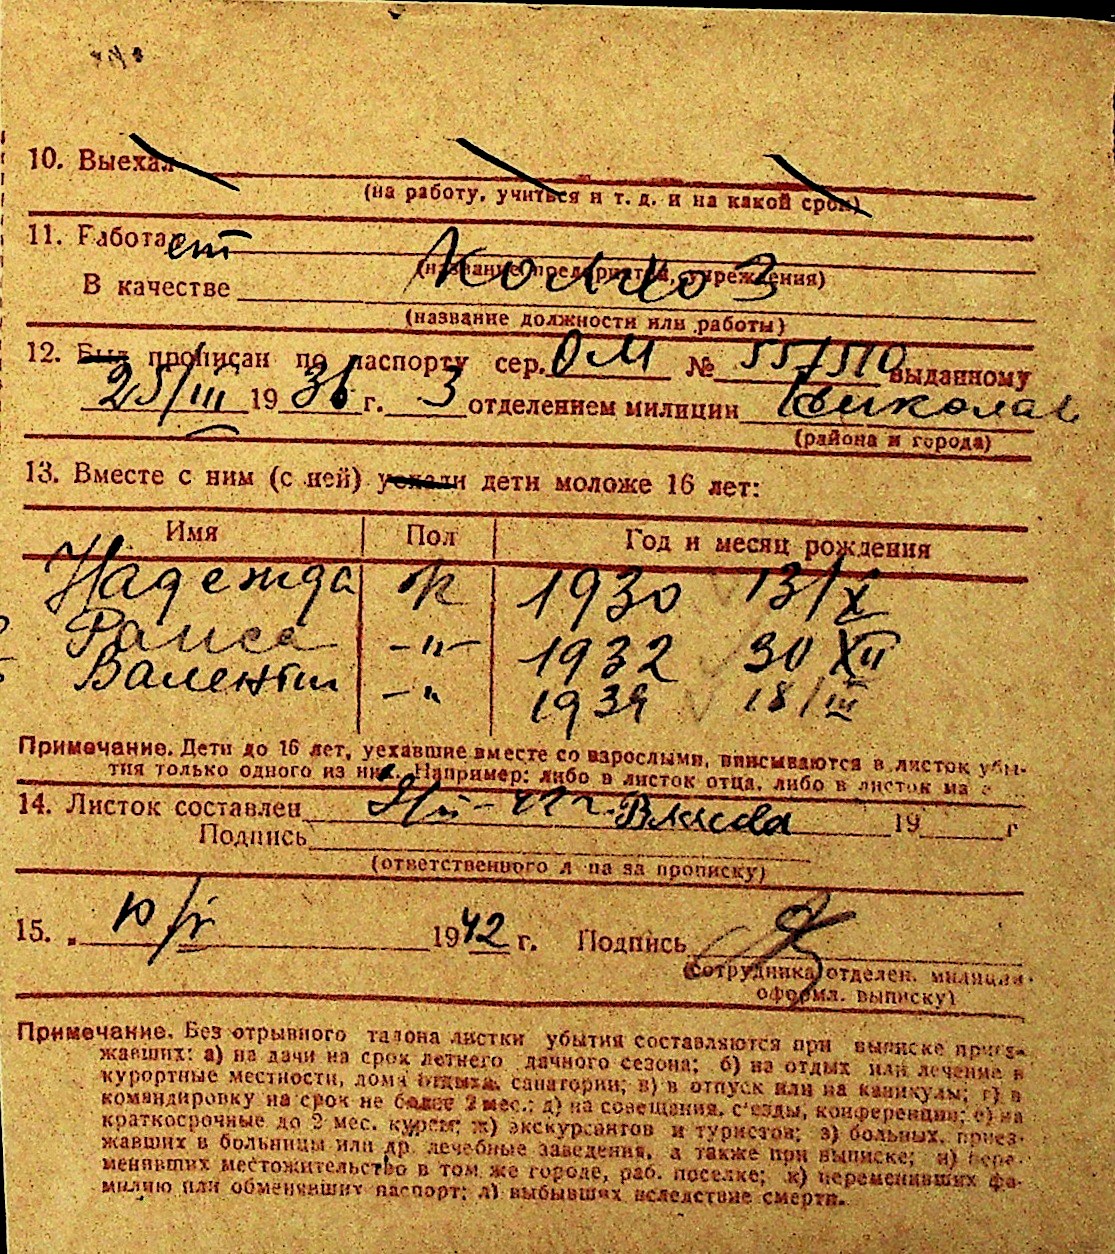 10. Выехал
(на работу, учиться и т. д. и на какой срок)
11. Работает Колхоз
(название предприятия, учреждения)
В качестве
(название должности или работы)
12. Был прописан по паспорту сер. ОМ № 551510 выданному
25/III 1936 г. 3 отделением милиции Николаев
(района и города)
13. Вместе с ним (с ней) уехали дети моложе 16 лет:
Имя Пол Год и месяц рождения
Надежда ж 1930 13/X
Раиса -"- 1932 30 XII
Валентин -" 1939 18/III
Примечание. Дети до 16 лет, уехавшие вместе со взрослыми, вписываются в листок убы-
тия только одного из них. Например: либо в листок отца, либо в листок ма
14. Листок составлен 19 г
Подпись
(ответственного лица за прописку)
15. „ 10/V 1942 г. Подпись
(сотрудника отделен. милиции.
оформл. выписку)
Примечание. Без отрывного талона листки убытия составляются при выписке приез-
жавших: а) на дачи на срок летнего дачного сезона; б) на отдых или лечение в
курортные местности, дома отдыха, санатории; в) в отпуск или на каникулы; г) в
командировку на срок не более 2 мес.; д) на совещания, съезды, конференции; е) на
краткосрочные до 2 мес. курсы; ж) экскурсантов и туристов; з) больных, приез-
жавших в больницы или др. лечебные заведения, а также при выписке; и) пере-
менивших местожительство в том же городе, раб. поселке; к) переменивших фа-
милию или обменявших паспорт; л) выбывших вследствие смерти.